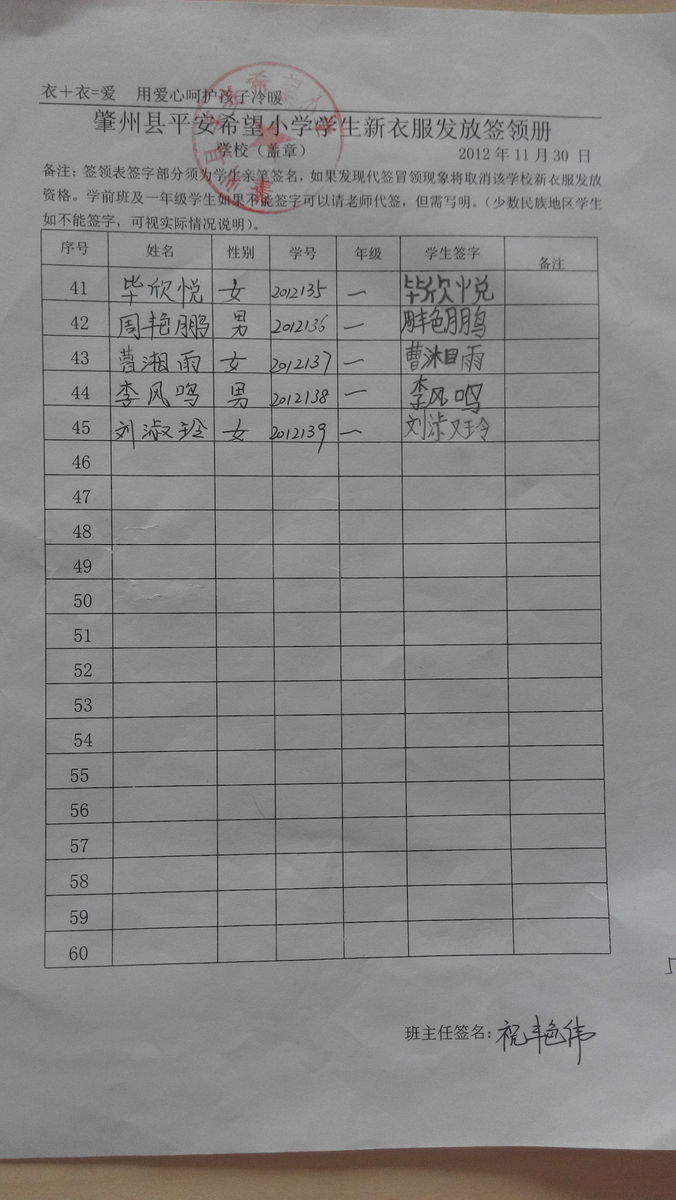 衣+衣=爱 用爱心呵护孩子冷暖
肇州县平安希望小学学生新衣服发放签领册
学校(盖章) 2012年11月30日
备注:签领表签字部分须为学生亲笔签名,如果发现代签冒领现象将取消该学校新衣服发放
资格。学前班及一年级学生如果不能签字可以请老师代签,但需写明。(少数民族地区学生
如不能签字,可视实际情况说明)。
序号 姓名 性别 学号 年级 学生签字 备注
41 毕欣悦 女 2012135 一 毕欣悦
42 周艳鹏 男 2012136 一 周艳鹏
43 曹湘雨 女 2012137 一 曹湘雨
44 李风鸣 男 2012138 一 李风鸣
45 刘淑玲 女 2012139 一 刘淑玲
46
47
48
49
50
51
52
53
54
55
56
57
58
59
60
班主任签名:祝艳伟